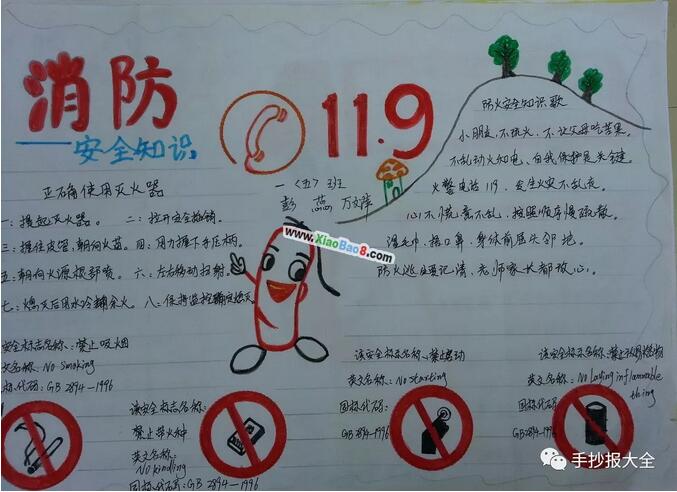 消防
安全知识
119
正确使用灭火器
一：提起灭火器。 二：拉开安全插销。
三：握住皮管，朝向火苗。 四：用力握下手压柄。
五：朝向火源根部喷。 六：左右移动扫射。
七：熄灭后用水冷却余火。 八：保持监控确定熄灭。
一〈五〉班
彭蕊 万文萍
www.XiaoBao8.com
防火安全知识歌
小朋友，不玩火，不让父母吃苦果。
不乱动火和电，自我保护是关键。
火警电话119，发生火灾不乱走。
心不慌意不乱，按照顺序慢疏散。
湿毛巾，捂口鼻，身体前屈头邻地。
防火逃生要记清，老师家长都放心。
安全标志名称：禁止吸烟
文名称：No smoking
标代码：GB 2894-1996
该安全标志名称：
禁止带火种
英文名称：
No kindling
国标代码：GB 2894-1996
该安全标志名称：禁止启动
英文名称：No starting
国标代码：
GB 2894-1996
该安全标志名称：禁止放易燃物
英文名称：No laying inflammable
thing
国标代码：
GB 2894-1996
手抄报大全